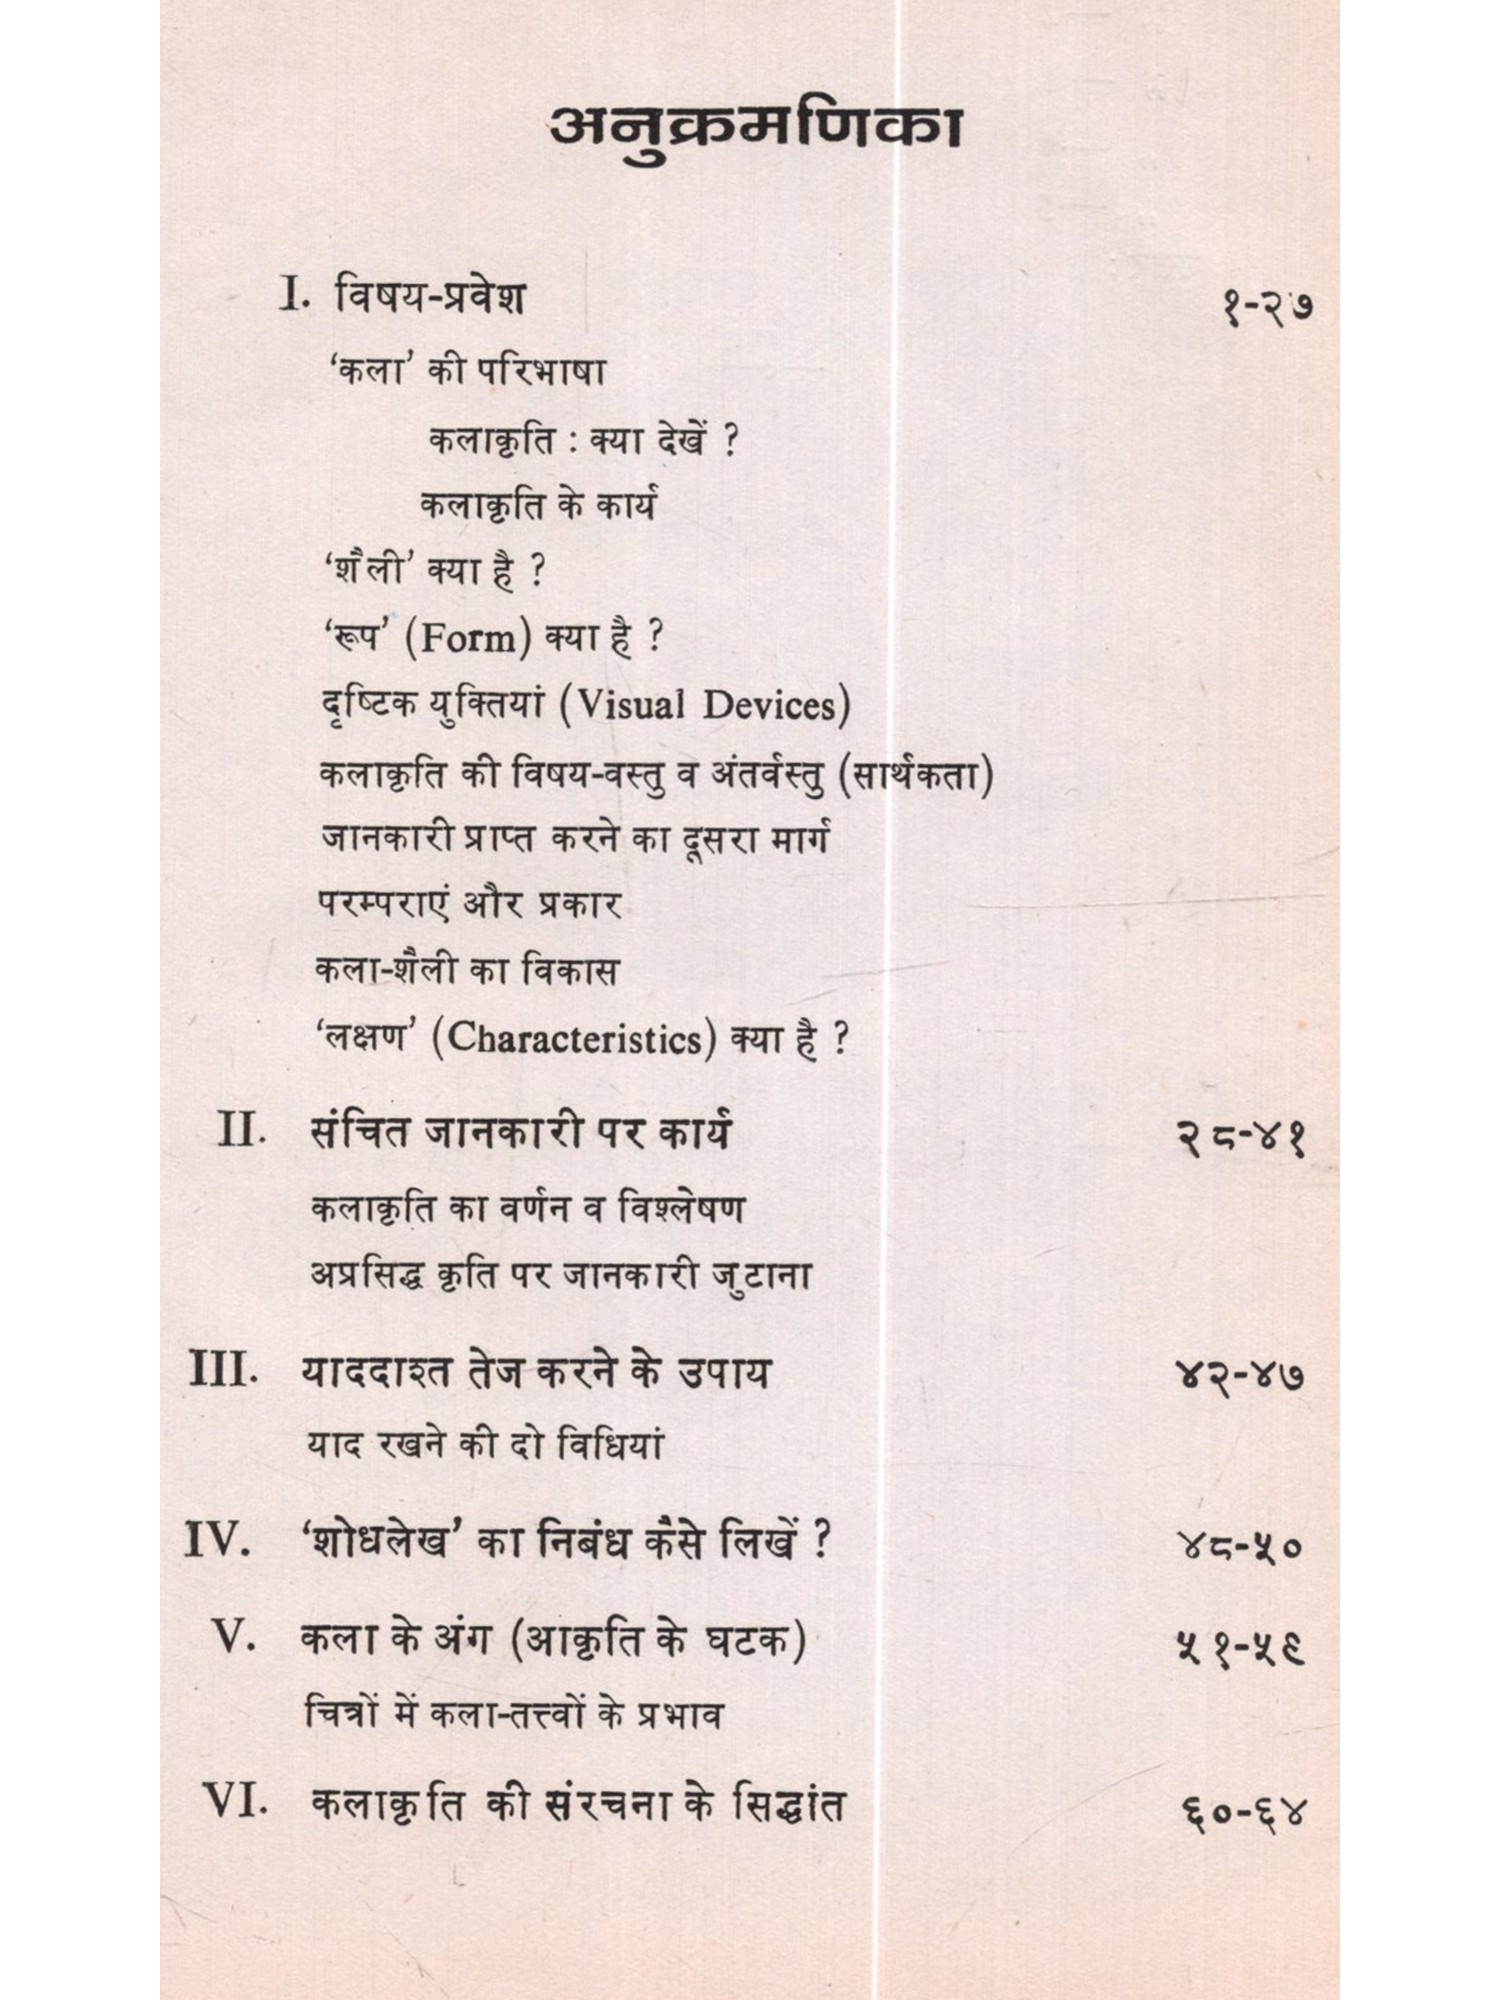 अनुक्रमणिका
I. विषय-प्रवेश १-२७
‘कला’ की परिभाषा
कलाकृति : क्या देखें ?
कलाकृति के कार्य
‘शैली’ क्या है ?
‘रूप’ (Form) क्या है ?
दृष्टिक युक्तियां (Visual Devices)
कलाकृति की विषय-वस्तु व अंतर्वस्तु (सार्थकता)
जानकारी प्राप्त करने का दूसरा मार्ग
परम्पराएं और प्रकार
कला-शैली का विकास
‘लक्षण’ (Characteristics) क्या है ?
II. संचित जानकारी पर कार्य २८-४१
कलाकृति का वर्णन व विश्लेषण
अप्रसिद्ध कृति पर जानकारी जुटाना
III. याददाश्त तेज करने के उपाय ४२-४७
याद रखने की दो विधियां
IV. ‘शोधलेख’ का निबंध कैसे लिखें ? ४८-५०
V. कला के अंग (आकृति के घटक) ५१-५९
चित्रों में कला-तत्त्वों के प्रभाव
VI. कलाकृति की संरचना के सिद्धांत ६०-६४